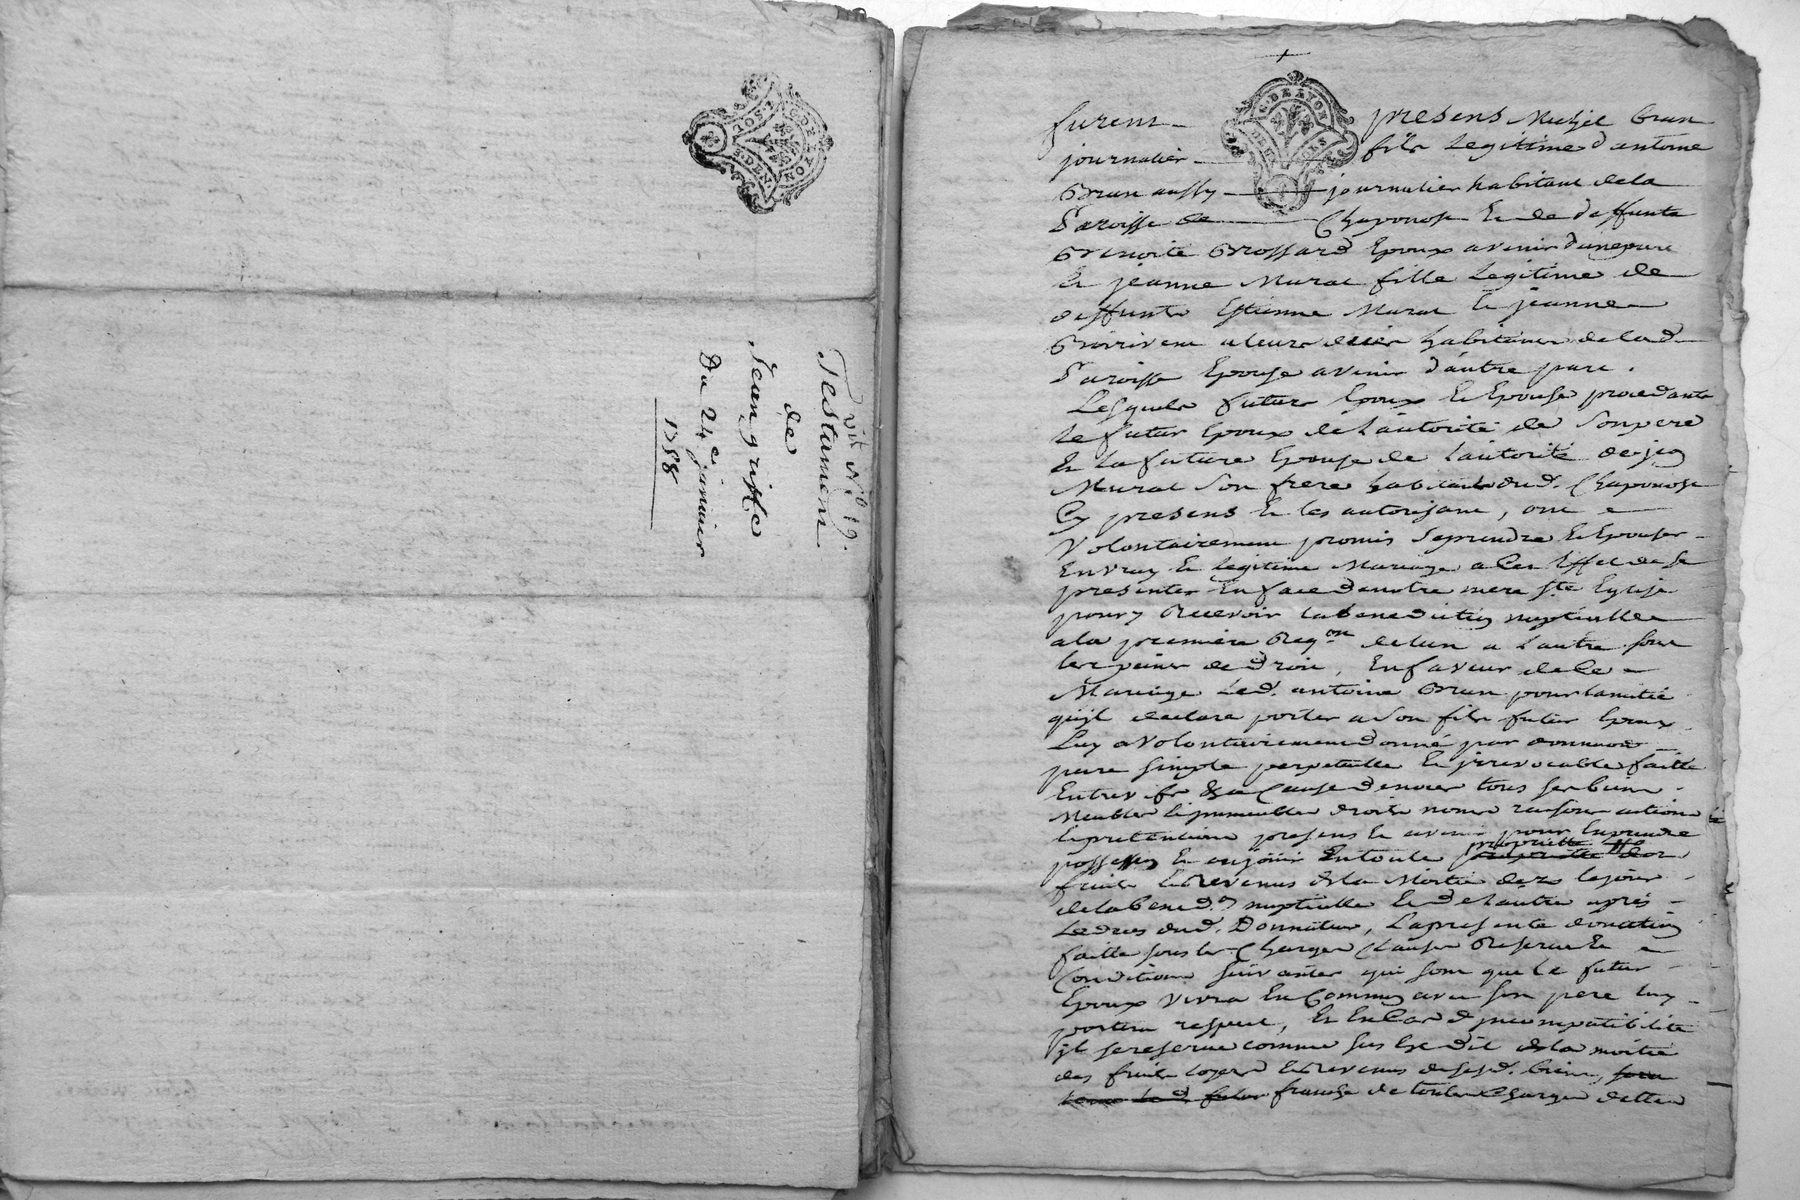 vis N.º 19.
Testament
de
Jean griffe
Du 24e janvier
1758
G. DE LYON
SOL
DEN
G. DE LYON
DEUX SOLS
furent presens Michel Brun
journalier fils Legitime d'antoine
Brun aussy journalier habitant de la
Paroisse de Chaponost Et de deffunte
Benoite Brossard Epoux avenir d'une part
Et jeanne Murat fille Legitime de
deffunts Estienne Murat Et jeanne
a leurs habitans de lad.
Paroisse Epouse avenir d'autre part.
Lesquels futurs Epoux Et Epouse procedants
Le futur Epoux de L'autorité de Son pere
Et La future Epouse de L'autorité de
Murat Son frere habitant dud. Chaponost
Cy presens Et les autorisant, ont
Volontairement promis Se prendre Et Epouser
En vray Et Legitime Mariage a cet Effet de Se
presenter En face de notre mere Ste Eglise
pour y Recevoir la benediction nuptialle
a la premiere Reqon de lun a L'autre sous
les peines de droit, En faveur de Ce
Mariage Led. antoine Brun pour lamitié
qu'jl declare porter a Son fils futur Epoux
Luy a Volontairement donné par donnaon
pure Simple perpetuelle Et jrrevocable faitte
Entre vifs a Cause de noces tous ses biens
Meubles Et immeubles droits noms raisons actions
Et pretentions presens Et avenir pour En prendre
possession Et en jouir En toute proprietté
fruits Et Revenus de la Moitié dez le jour
de la Bened.on nuptialle Et de L'autre après
Le deces dud. Donnateur, La presente donation
faitte sous les Charges Clauses Reserves Et
Conditions Suivantes qui Sont que Le futur
Epoux vivra En Commun avec Son pere luy
portera respect, Et En Cas d'jncompatibilité
jl se reserve comme sus Est dit la moitié
des fruits loyers Et Revenus de sesd. biens sera
tenu led. futur franche de toutes Charges dettes